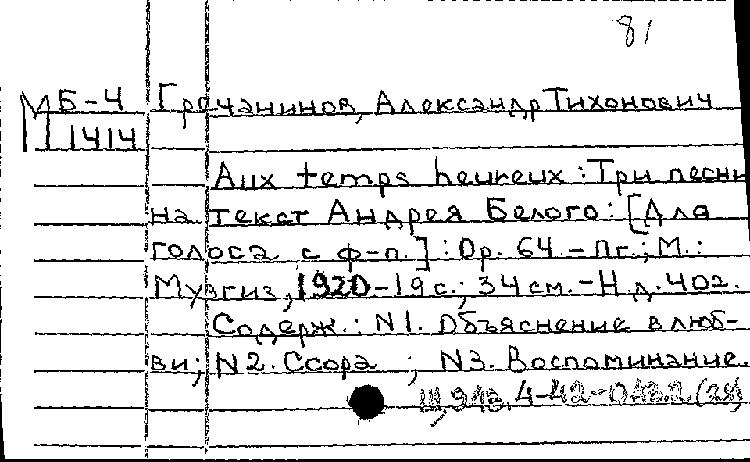 81
МБ-4 Гречанинов, Александр Тихонович
1414
Aux temps heureux : Три песни
на текст Андрея Белого : [Для
голоса с ф-п.] : Op. 64 - Пг.; М.:
Музгиз, 1920 - 19 с.; 34 см. - Н.д. 402.
Содерж.: N1. Объяснение в люб-
ви; N2. Ссора ; N3. Воспоминание.